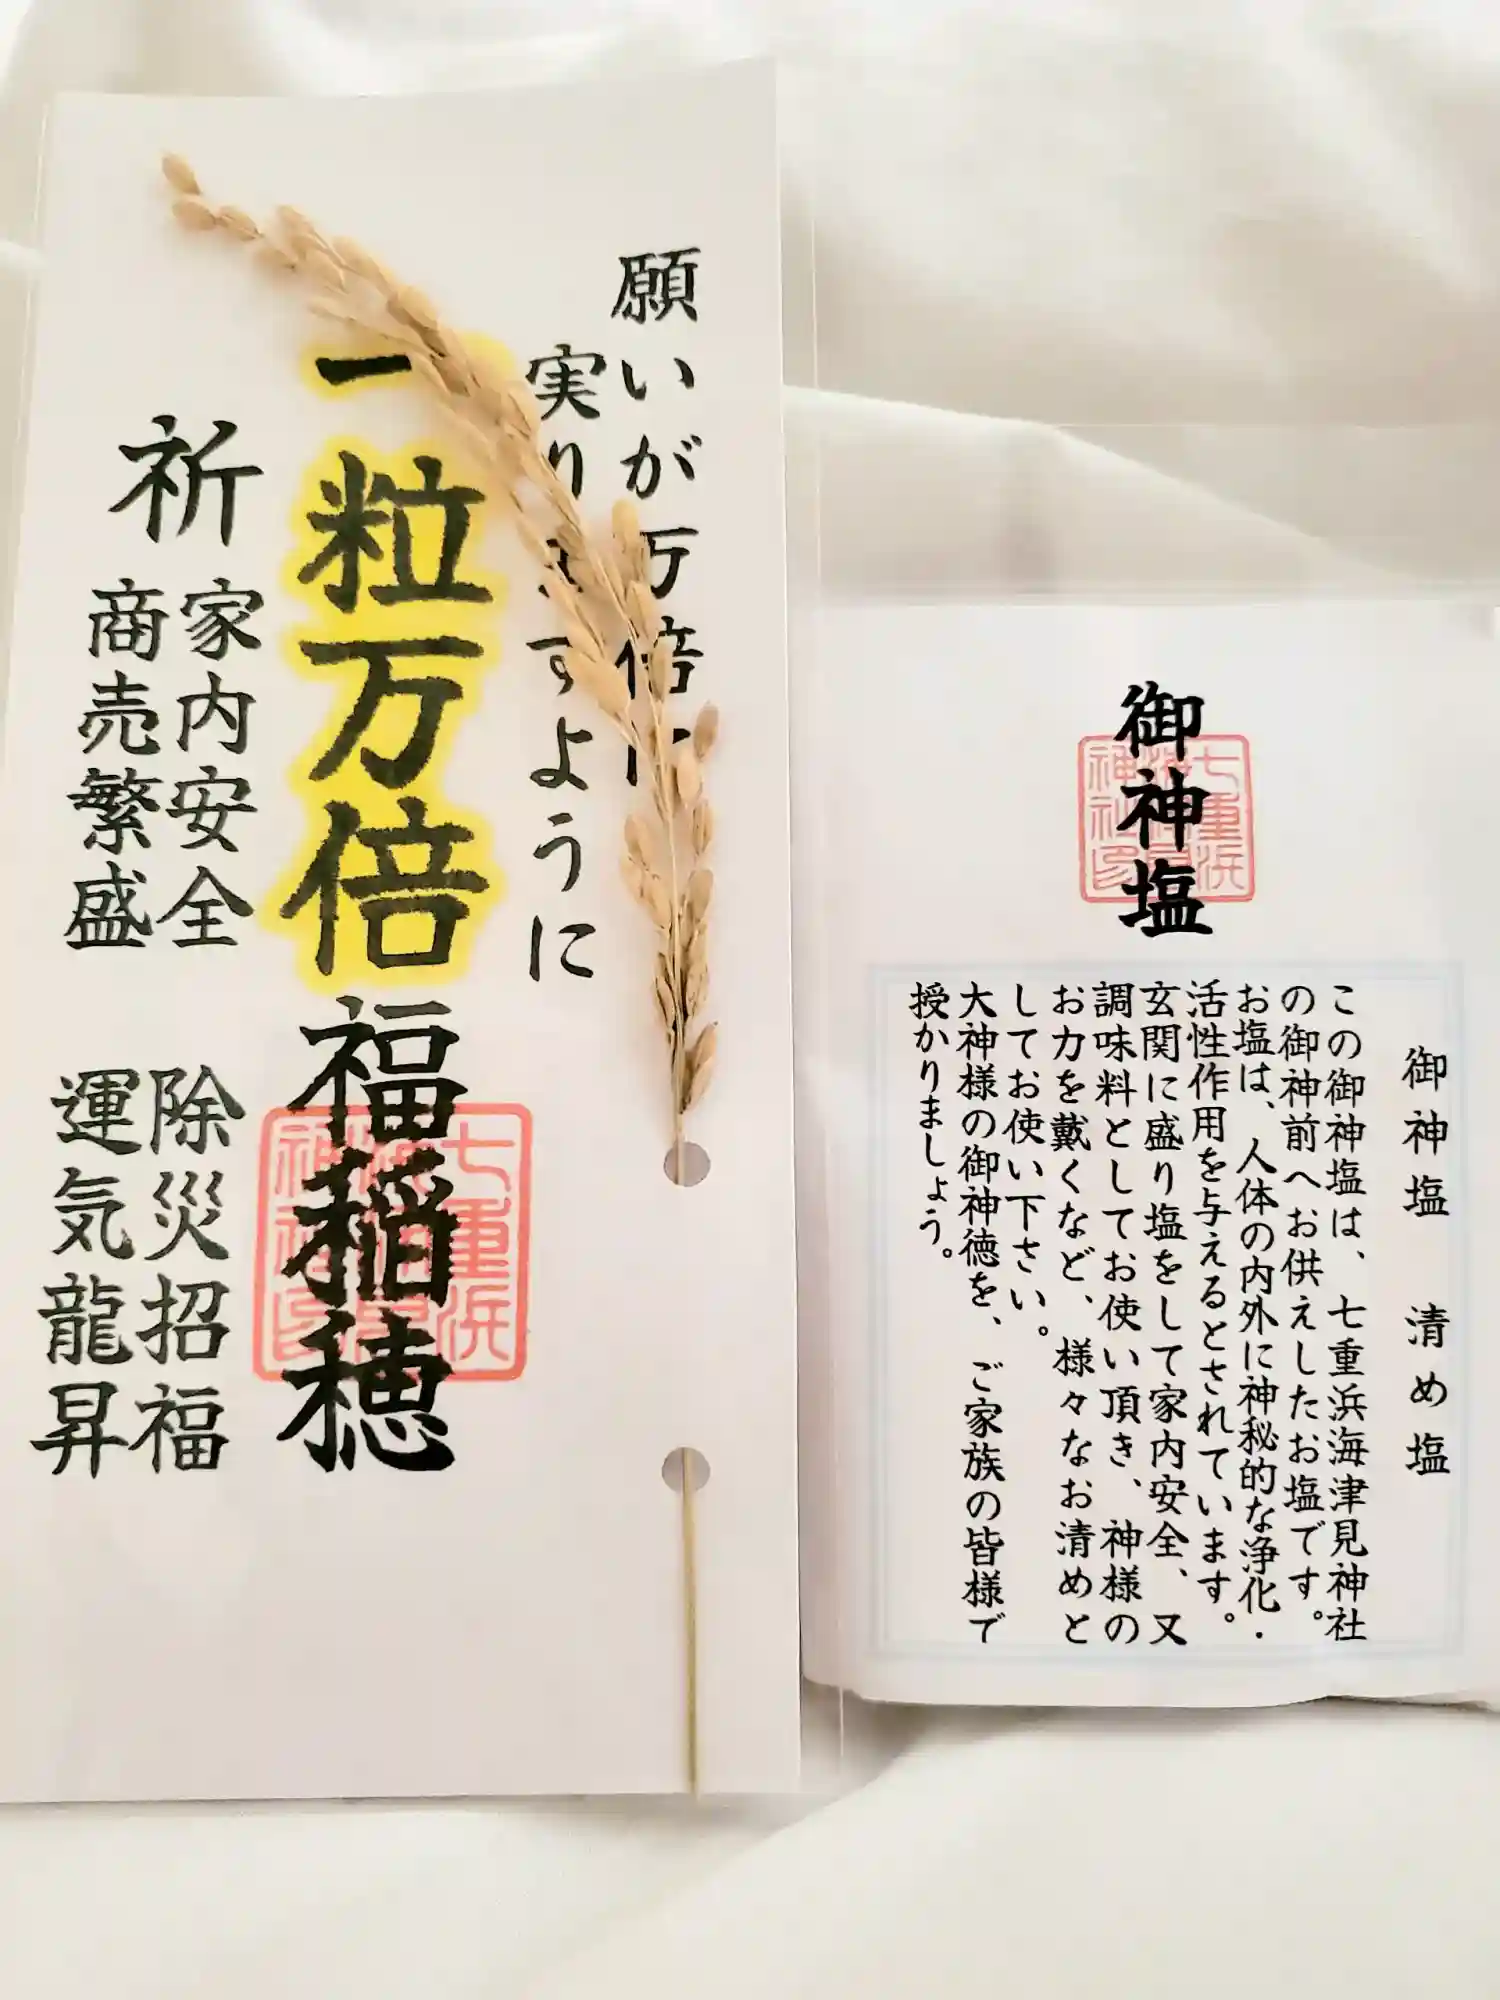 願いが万倍に
実りますように
一粒万倍福稲穂
祈
家内安全
商売繁盛
除災招福
運気龍昇
七重浜
海津見
神社印
御神塩
七重浜
海津見
神社印
御神塩 清め塩
この御神塩は、七重浜海津見神社
の御神前へお供えしたお塩です。
お塩は、人体の内外に神秘的な浄化・
活性作用を与えるとされています。
玄関に盛り塩をして家内安全、又
調味料としてお使い頂き、神様の
お力を戴くなど、様々なお清めと
してお使い下さい。
大神様の御神徳を、ご家族の皆様で
授かりましょう。